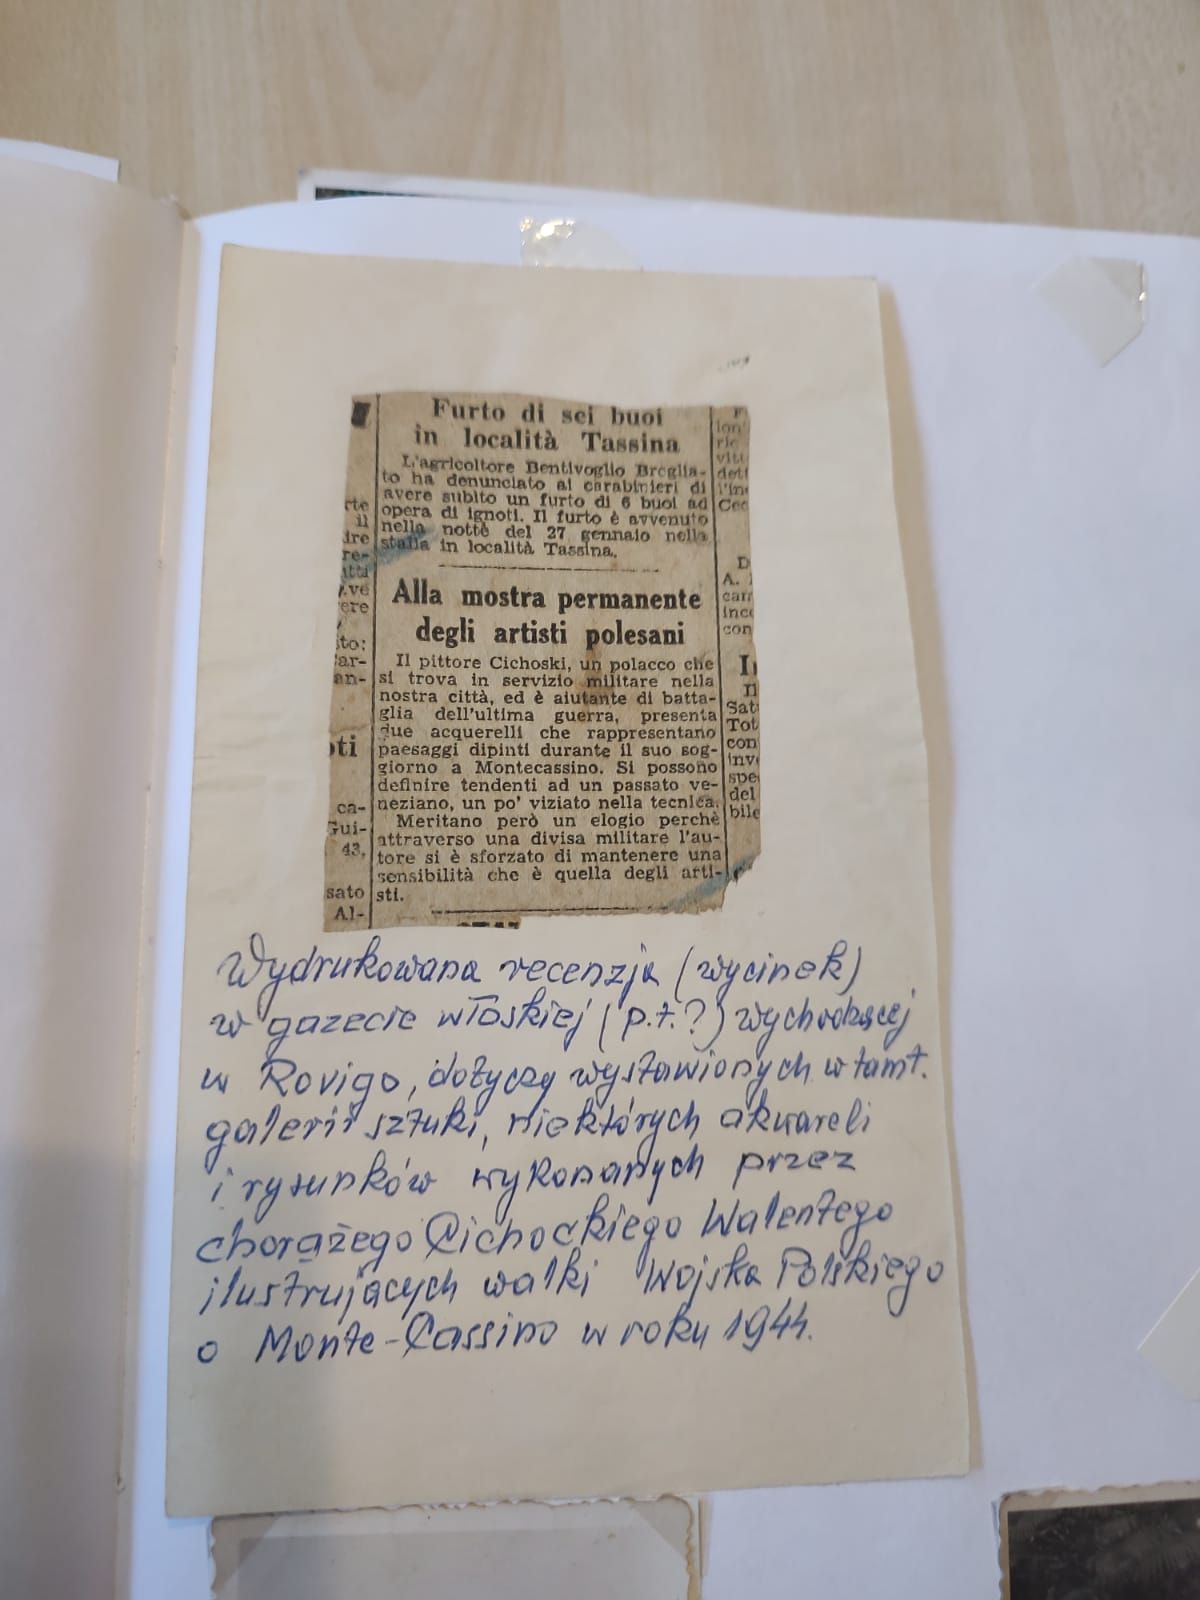 Furto di sei buoi
in località Tassina
L'agricoltore Bentivoglio Broglia-
to ha denunciato ai carabinieri di
avere subito un furto di 6 buoi ad
opera di ignoti. Il furto è avvenuto
nella notte del 27 gennaio nella
stalla in località Tassina.
Alla mostra permanente
degli artisti polesani
Il pittore Cichoski, un polacco che
si trova in servizio militare nella
nostra città, ed è aiutante di batta-
glia dell'ultima guerra, presenta
due acquerelli che rappresentano
paesaggi dipinti durante il suo sog-
giorno a Montecassino. Si possono
definire tendenti ad un passato ve-
neziano, un po' viziato nella tecnica.
Meritano però un elogio perchè
attraverso una divisa militare l'au-
tore si è sforzato di mantenere una
sensibilità che è quella degli arti-
sti.
rte
il
ire
re-
ere
to:
ar-
an-
oti
ca-
Gui-
43,
sato
Al-
A.
con
Il
Sat
Tot
con
inv
spe
del
bile
Wydrukowana recenzja (wycinek)
w gazecie włoskiej (p.t.?) wychodzącej
w Rovigo, dotyczy wystawionych w tamt.
galerii sztuki, niektórych akwareli
i rysunków wykonanych przez
chorążego Cichockiego Walentego
ilustrujących walki Wojska Polskiego
o Monte-Cassino w roku 1944.